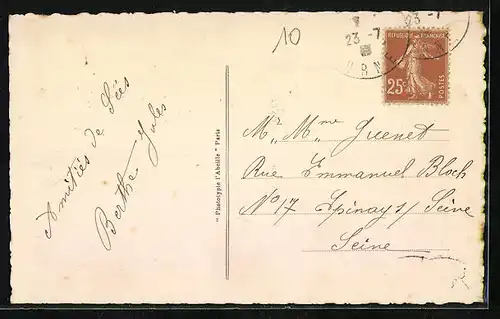 10
23 -7
23 -7
ORNE
REPUBLIQUE FRANÇAISE
25c
POSTES
Amitiés de Sées
Berthe Jules
" Phototypie l'Abeille " Paris
Mr Mme Guenet
Rue Emmanuel Bloch
No 17 Epinay s/ Seine
Seine